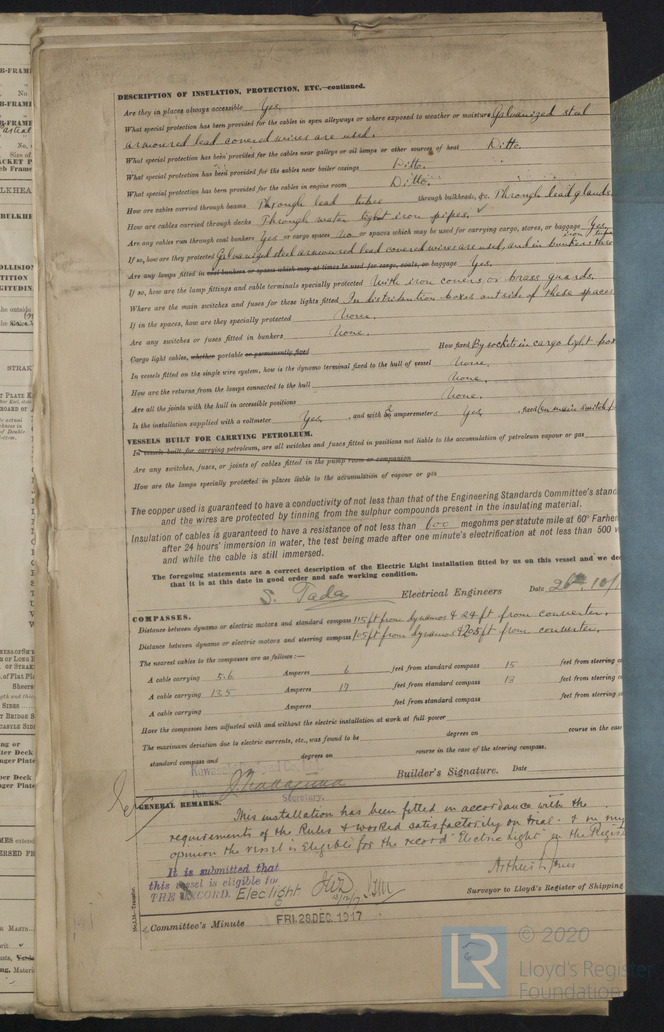 DESCRIPTION OF INSULATION, PROTECTION, ETC.—continued.
Are they in places always accessible Yes.
What special protection has been provided for the cables in open alleyways or where exposed to weather or moisture Galvanized steel
armoured lead covered wires are used.
What special protection has been provided for the cables near galleys or oil lamps or other sources of heat Ditto.
What special protection has been provided for the cables near boiler casings Ditto.
What special protection has been provided for the cables in engine room Ditto.
How are cables carried through beams Through lead tubes through bulkheads, &c. Through lead glands
How are cables carried through decks Through water tight iron pipes.
Are any cables run through coal bunkers Yes or cargo spaces No or spaces which may be used for carrying cargo, stores, or baggage Yes
If so, how are they protected Galvanized steel armoured lead covered wires are used, and in bunkers thro iron
Are any lamps fitted in coal bunkers or spaces which may at times be used for cargo, coals, or baggage Yes.
If so, how are the lamp fittings and cable terminals specially protected With iron covers or brass guards.
Where are the main switches and fuses for these lights fitted In distribution boxes outside of these spaces
If in the spaces, how are they specially protected None.
Are any switches or fuses fitted in bunkers None.
Cargo light cables, whether portable or permanently fixed How fixed By sockets in cargo light
In vessels fitted on the single wire system, how is the dynamo terminal fixed to the hull of vessel None.
How are the returns from the lamps connected to the hull None.
Are all the joints with the hull in accessible positions None.
Is the installation supplied with a voltmeter Yes , and with 2 amperemeters Yes , fixed On main switch
VESSELS BUILT FOR CARRYING PETROLEUM.
In vessels built for carrying petroleum, are all switches and fuses fitted in positions not liable to the accumulation of petroleum vapour or gas
Are any switches, fuses, or joints of cables fitted in the pump room or companion
How are the lamps specially protected in places liable to the accumulation of vapour or gas
The copper used is guaranteed to have a conductivity of not less than that of the Engineering Standards Committee's stand
and the wires are protected by tinning from the sulphur compounds present in the insulating material.
Insulation of cables is guaranteed to have a resistance of not less than 600 megohms per statute mile at 60° Farhen
after 24 hours' immersion in water, the test being made after one minute's electrification at not less than 500 v
and while the cable is still immersed.
The foregoing statements are a correct description of the Electric Light installation fitted by us on this vessel and we dec
that it is at this date in good order and safe working condition.
S. Tada Electrical Engineers Date
COMPASSES.
Distance between dynamo or electric motors and standard compass 115 ft from dynamos & 24 ft from converter.
Distance between dynamo or electric motors and steering compass 105 ft from dynamos & 20.5 ft from converter.
The nearest cables to the compasses are as follows:—
A cable carrying 5.6 Amperes 6 feet from standard compass 15 feet from steering c
A cable carrying 13.5 Amperes 17 feet from standard compass 13 feet from steering c
A cable carrying Amperes feet from standard compass feet from steering c
Have the compasses been adjusted with and without the electric installation at work at full power
The maximum deviation due to electric currents, etc., was found to be degrees on course in the case
standard compass and degrees on course in the case of the steering compass.
Builder's Signature. Date
Secretary.
GENERAL REMARKS.
This installation has been fitted in accordance with the
requirements of the Rules & worked satisfactorily on trial & in my
opinion the vessel is eligible for the record "Electric Light" in the Regis
It is submitted that
this vessel is eligible for
THE RECORD. Elec light
Arthur L. Jones
Surveyor to Lloyd's Register of Shipping
Committee's Minute FRI. 28 DEC. 1917
LR © 2020
Lloyd's Register
Foundation